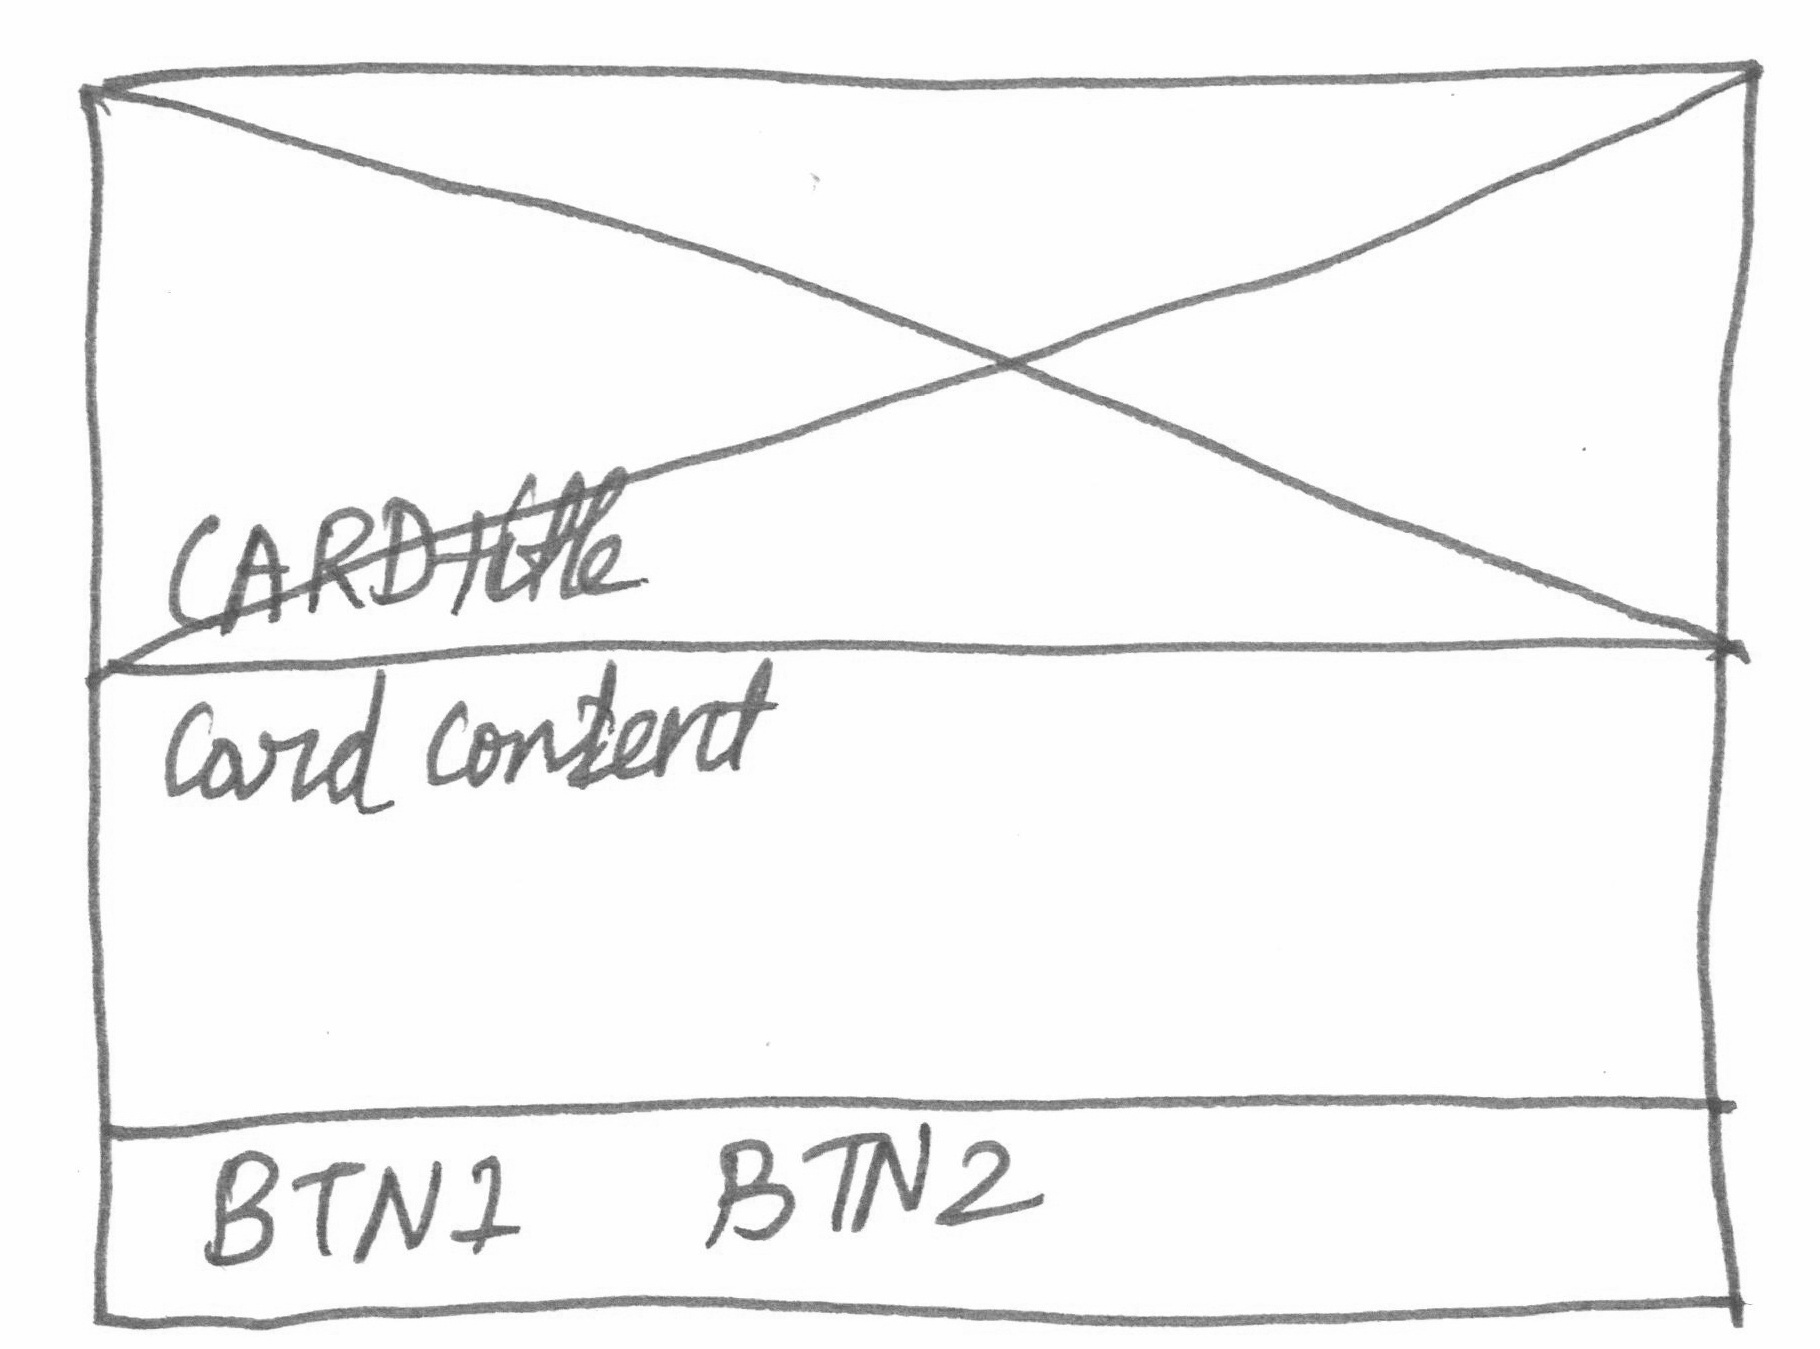 CARD title
Card content
BTN1 BTN2